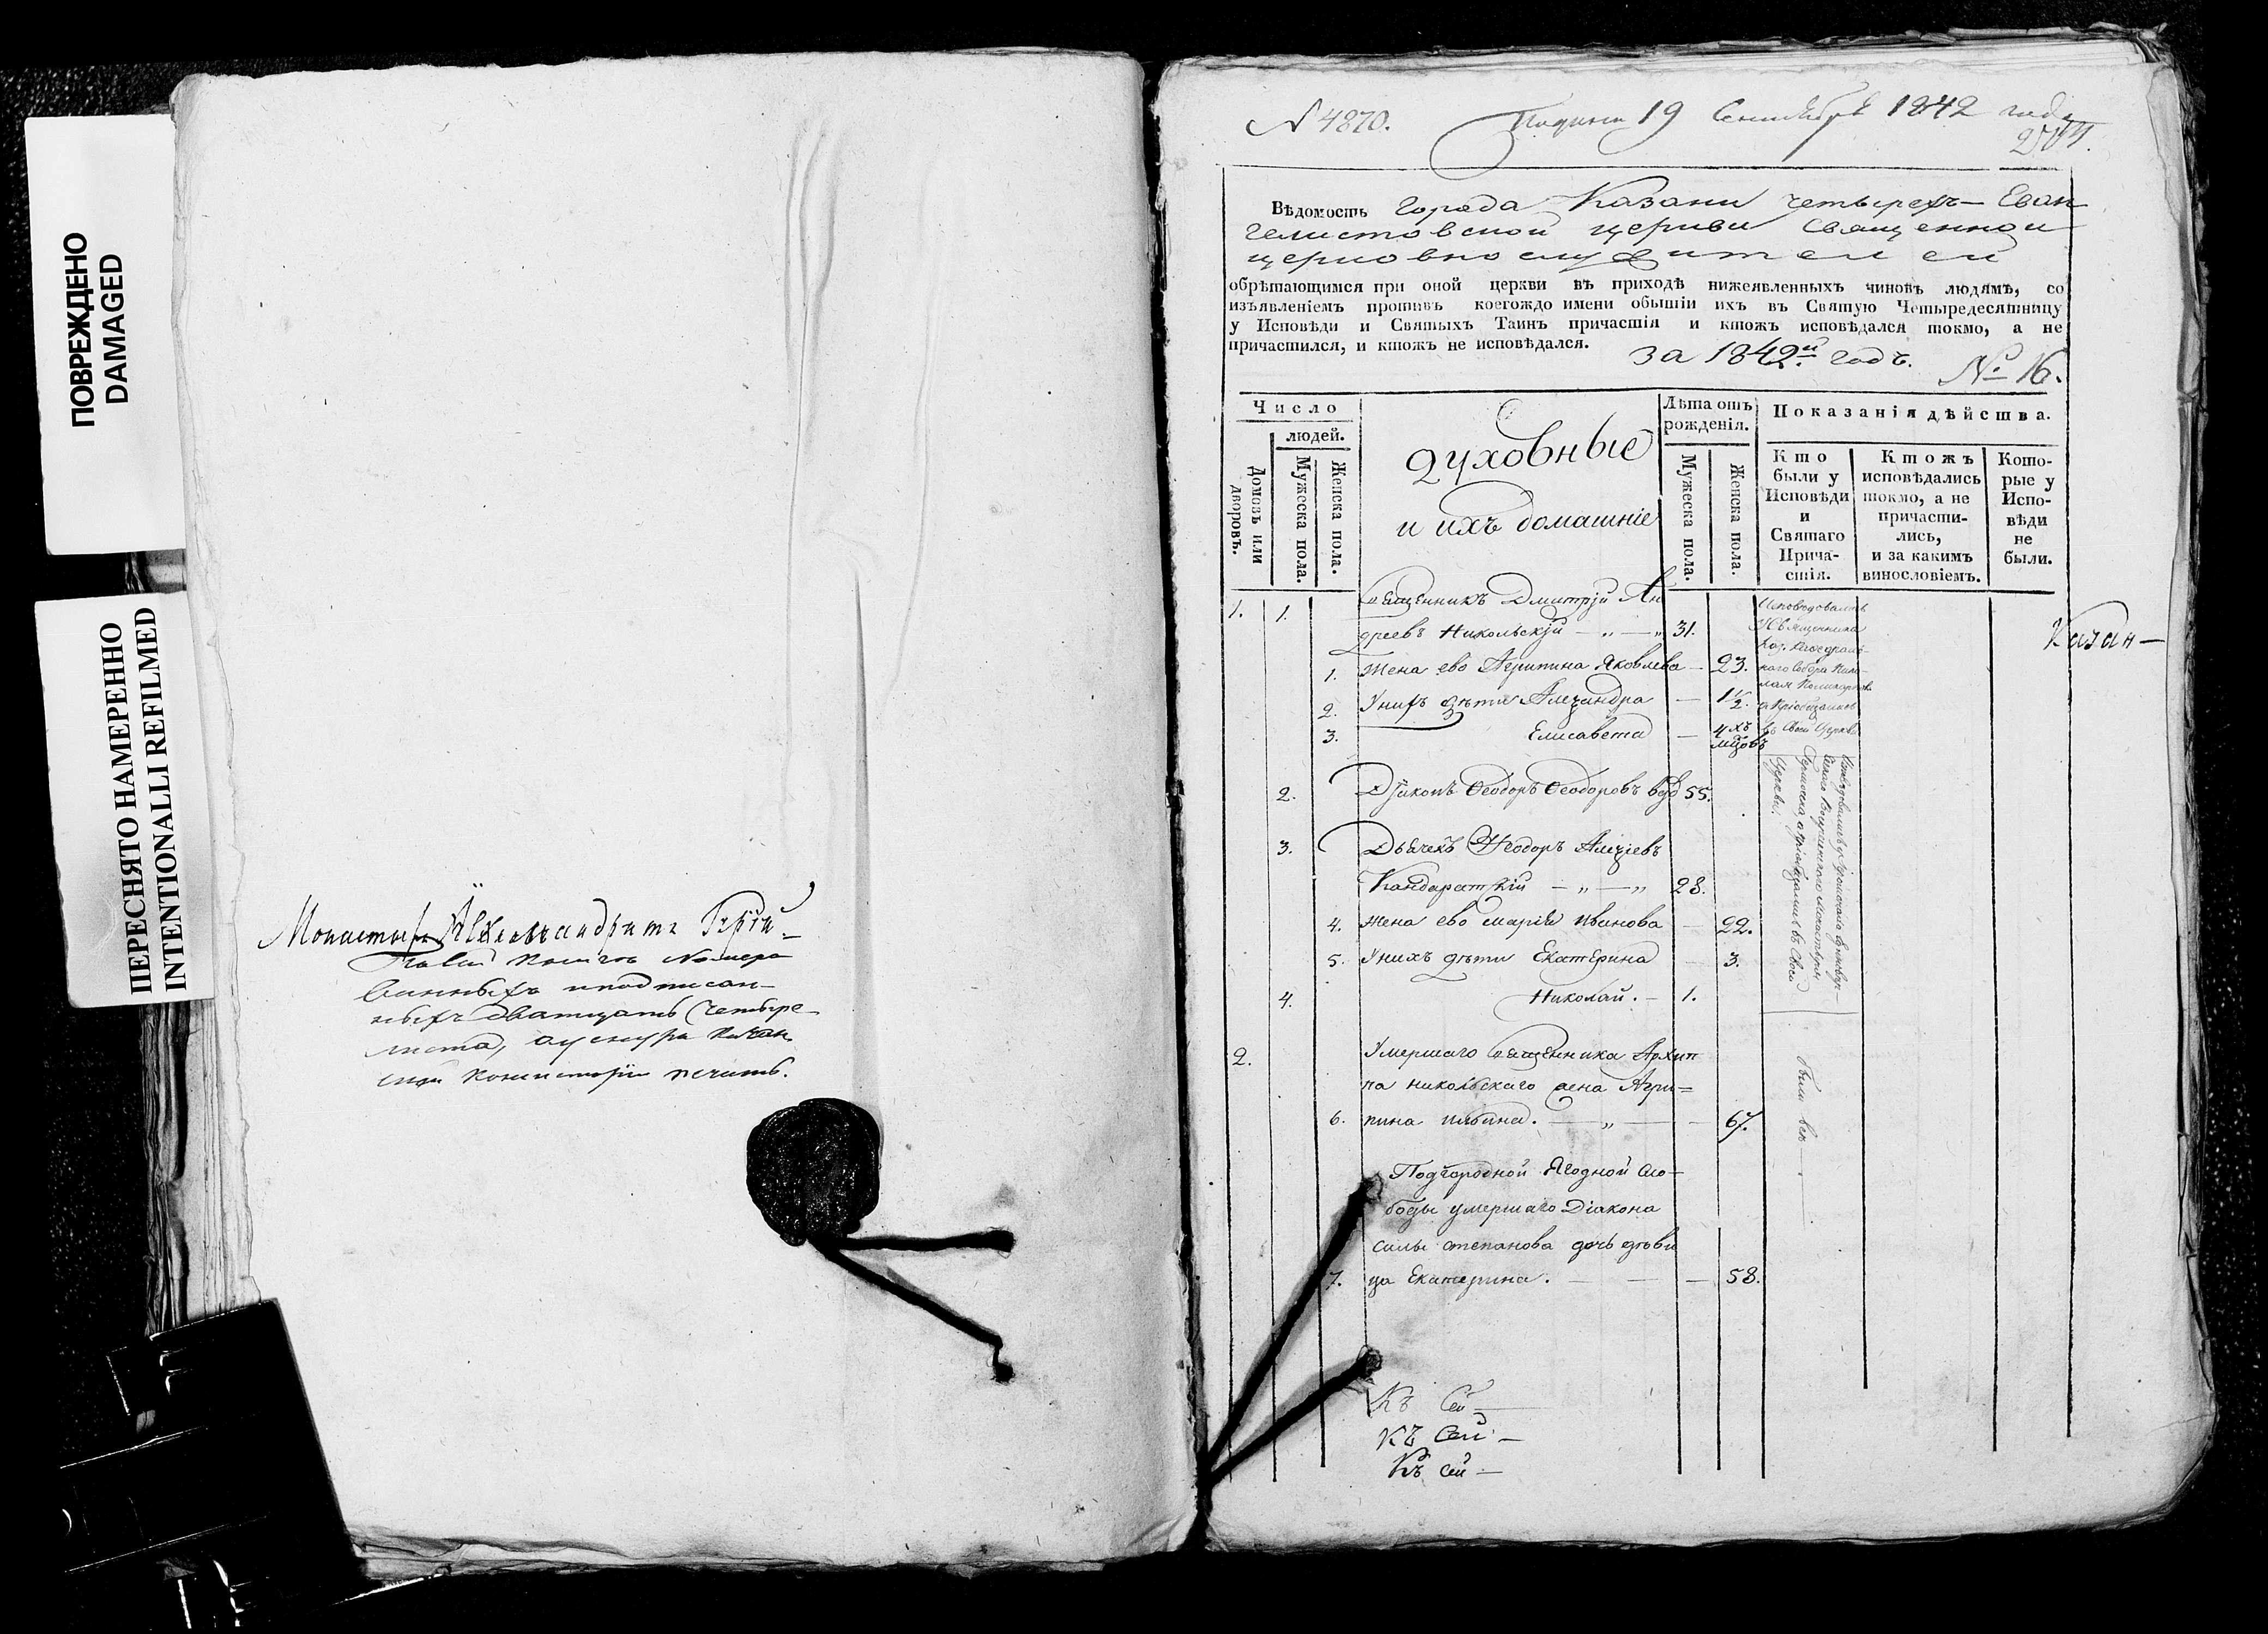 ПОВРЕЖДЕНО
DAMAGED
ПЕРЕСНЯТО НАМЕРЕННО
INTENTIONALLI REFILMED
въ сей книгѣ Номеро
ванныхъ и подписан-
ныхъ дватцать четыре
листа, оу снура Казан
ской консисторіи печать.
N 4870.
19 Сентября 1842 года
Вѣдомость Города Казани четырехъ-Еван
гелистовской церкви Священно и
церковнослужителей
обрѣтающимся при оной церкви въ приходѣ нижеявленныхъ чиновъ людямъ, со
изъявленіемъ противъ коегождо имени бытіи ихъ въ Святую Четыредесятницу
у Исповѣди и Святыхъ Таинъ причастія и ктожъ исповѣдался токмо, а не
причастился, и ктожъ не исповѣдался.
за 1842й годъ.
№ 16.
Число
людей.
Домовъ или дворовъ.
Мужеска пола.
Женска пола.
духовные
и ихъ домашніе
Лѣта отъ
рожденія.
Мужеска пола.
Женска пола.
Показанія дѣйства.
Кто
были у
Исповѣди
и
Святаго
Прича-
стія.
Ктожъ
исповѣдались
токмо, а не
причасти-
лись,
и за какимъ
винословіемъ.
Кото-
рые у
Испо-
вѣди
не
были.
1. 1. Священникъ Дмитрій Ан
дреевъ Никольскій — „ — „ 31.
1. Жена ево Агрипина Яковлева — 23.
2. У нихъ дѣти Алеѯандра — 1 1/2.
3. Елисавета — 4хъ
мцовъ
въ своей Церкви
Казан—
2. Діаконъ Ѳеодоръ Ѳеодоровъ вдв 55.
3. Дьячекъ Ѳеодоръ Алеѯіевъ
Кандаратскій — „ — „ 28.
4. Жена ево Марія Иванова — 22.
5. У нихъ дѣти Екатерина — 3.
4. Николай. — 1.
2. Умершаго Священника Архип
па Никольскаго жена Агри=
6. пина Ильина. — „ — 67.
были всѣ
Подгородной Ягодной сло-
боды умершаго Діакона
Силы Степанова дочь дѣви
7. ца Екатерина. — — — 58.
Къ Сей —
Къ Сей —
Къ сей —